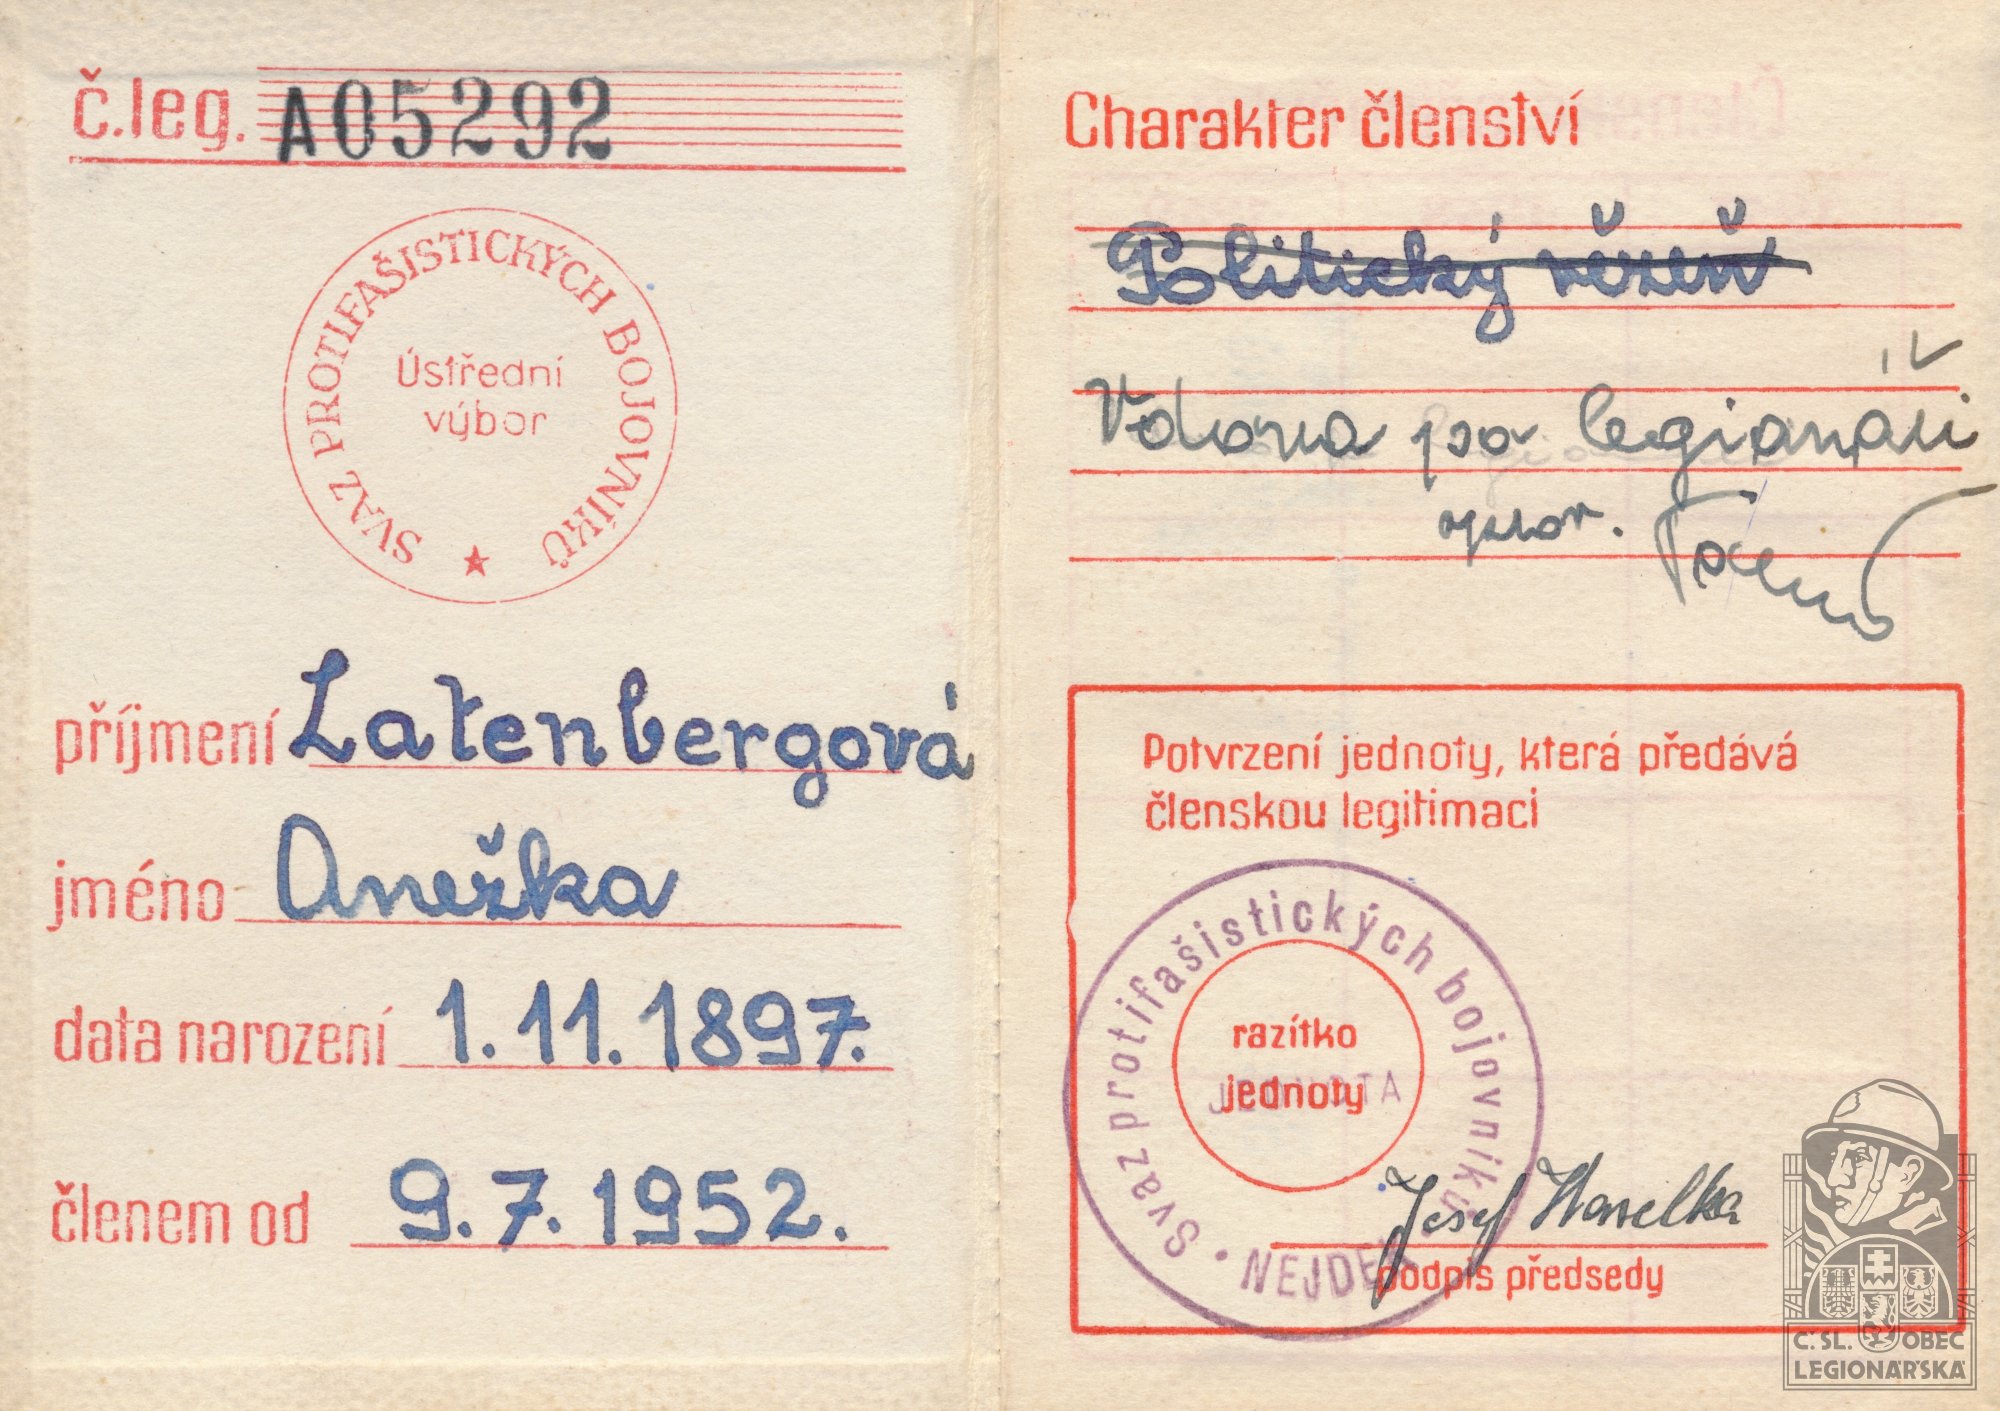 č.leg. A05292
SVAZ PROTIFAŠISTICKÝCH BOJOVNÍKŮ
Ústřední
výbor
příjmení Latenbergová
jméno Anežka
data narození 1.11.1897.
členem od 9.7.1952.
Charakter členství
Politický vězeň
Vdova po legionáři
Potvrzení jednoty, která předává
členskou legitimaci
Svaz protifašistických bojovníků
NEJDEK
JEDNOTA
razítko
jednoty
Josef Havelka
podpis předsedy
Č. SL. OBEC
LEGIONÁŘSKÁ